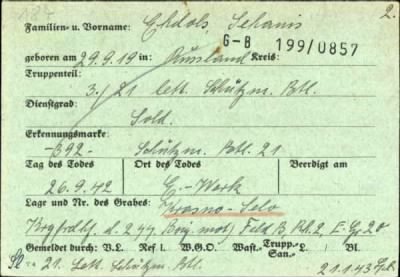 2.
Familien- u. Vorname: Ehdols, Jehanis
G-B 199/0857
geboren am 29.9.19 in: Russland Kreis:
Truppenteil:
3./21 lett. Schützm. Btl.
Dienstgrad:
Sold.
Erkennungsmarke:
-392- Schützm. Btl. 21
Tag des Todes Ort des Todes Beerdigt am
26.9.42 G.-Werk
Lage und Nr. des Grabes: Krosno-Selo
d. 277 mot) Feld B. Rh. 2, E. Gr. 20
Gemeldet durch: V.L. Ref L. W.G.O. Wast- Trupp.- San.- L. Bl.
21. Lett. Schützm. Btl. 21.1.43